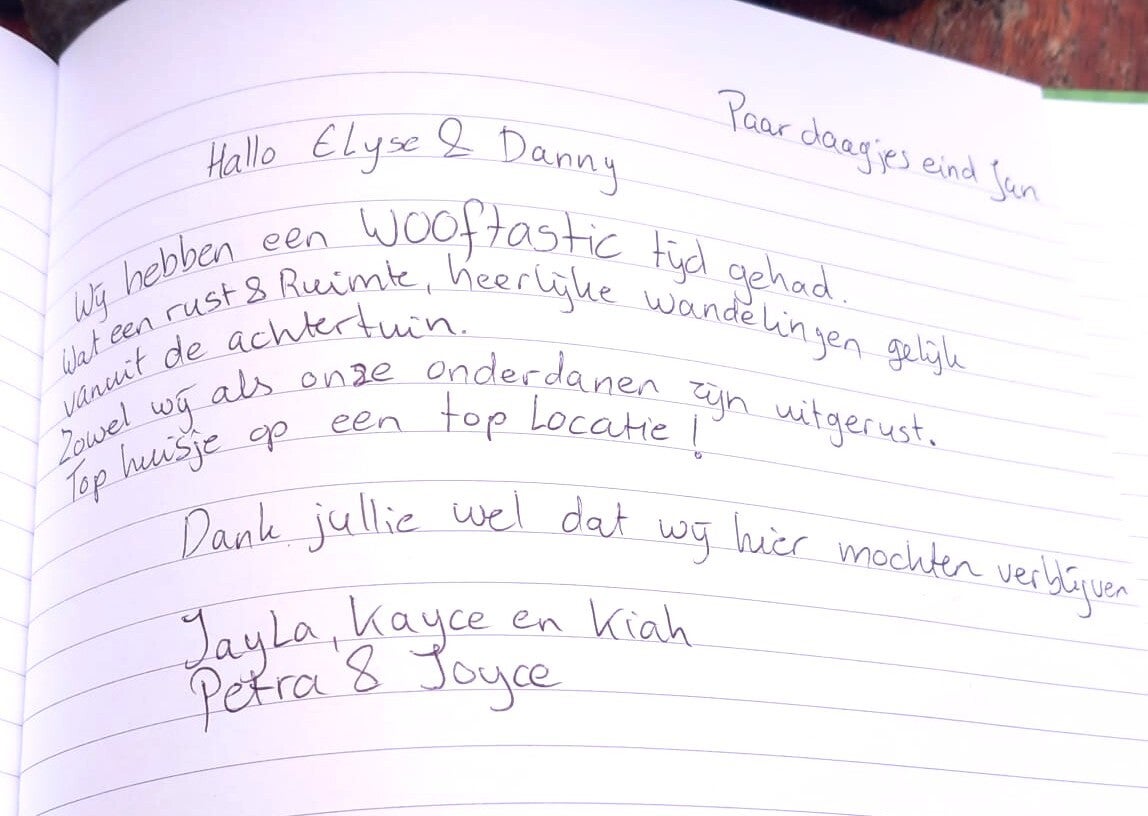 Paar daagjes eind Jan
Hallo Elyse & Danny
Wij hebben een wooftastic tijd gehad.
Wat een rust & Ruimte, heerlijke wandelingen gelijk
vanuit de achtertuin.
Zowel wij als onze onderdanen zijn uitgerust.
Top huisje op een top Locatie!
Dank jullie wel dat wij hier mochten verblijven
Jayla, Kayce en Kiah
Petra & Joyce